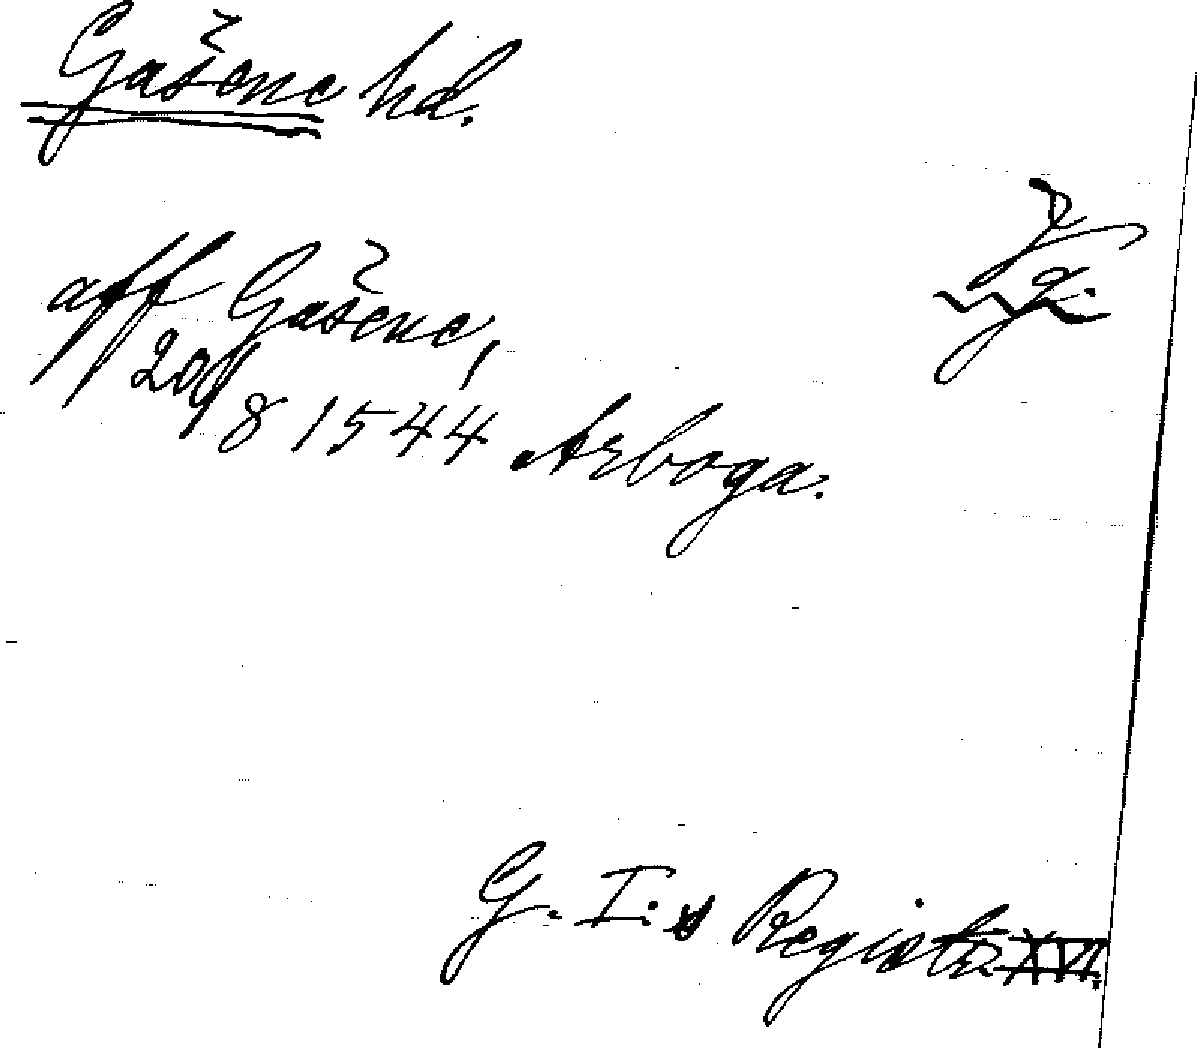 Gašene hd.
Vg.
aff Gašene,
20/8 1544 Arboga.
G. I:s Registr. XVI.